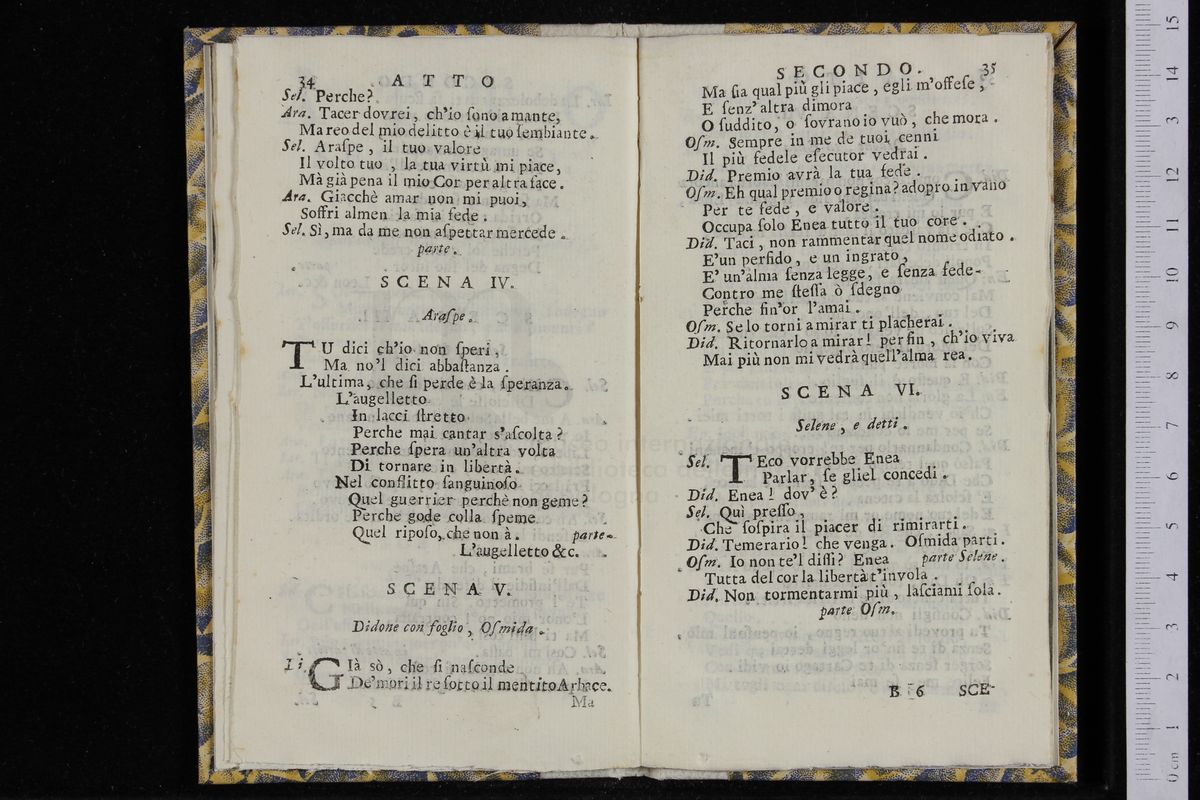 34 ATTO
Sel. Perche?
Ara. Tacer dovrei, ch'io ſono amante,
Ma reo del mio delitto è il tuo ſembiante.
Sel. Araſpe, il tuo valore
Il volto tuo, la tua virtù mi piace,
Mà già pena il mio Cor per altra face.
Ara. Giacchè amar non mi puoi,
Soffri almen la mia fede.
Sel. Sì, ma da me non aſpettar mercede.
parte.
SCENA IV.
Araſpe.
TU dici ch'io non ſperi,
Ma no'l dici abbaſtanza.
L'ultima, che ſi perde è la ſperanza.
L'augelletto
In lacci ſtretto
Perche mai cantar s'aſcolta?
Perche ſpera un'altra volta
Di tornare in libertà.
Nel conflitto ſanguinoſo
Quel guerrier perchè non geme?
Perche gode colla ſpeme
Quel ripoſo, che non à. parte.
L'augelletto &c.
SCENA V.
Didone con foglio, Oſmida.
GIà sò, che ſi naſconde
De'mori il re ſotto il mentito Arbace.
Ma
SECONDO. 35
Ma ſia qual più gli piace, egli m'offeſe,
E ſenz'altra dimora
O ſuddito, o ſovrano io vuò, che mora.
Oſm. Sempre in me de tuoi cenni
Il più fedele eſecutor vedrai.
Did. Premio avrà la tua fede.
Oſm. Eh qual premio o regina? adopro in vano
Per te fede, e valore.
Occupa ſolo Enea tutto il tuo core.
Did. Taci, non rammentar quel nome odiato.
E'un perfido, e un ingrato,
E' un'alma ſenza legge, e ſenza fede-
Contro me ſteſſa ò ſdegno
Perche fin'or l'amai.
Oſm. Se lo torni a mirar ti placherai.
Did. Ritornarlo a mirar! per fin, ch'io viva
Mai più non mi vedrà quell'alma rea.
SCENA VI.
Selene, e detti.
Sel. TEco vorrebbe Enea
Parlar, ſe gliel concedi.
Did. Enea! dov'è?
Sel. Quì preſſo,
Che ſoſpira il piacer di rimirarti.
Did. Temerario! che venga. Oſmida parti.
Oſm. Io non te'l diſſi? Enea parte Selene.
Tutta del cor la libertà t'invola.
Did. Non tormentarmi più, laſciami ſola.
parte Oſm.
B 6 SCE-
0 cm 1 2 3 4 5 6 7 8 9 10 11 12 13 14 15